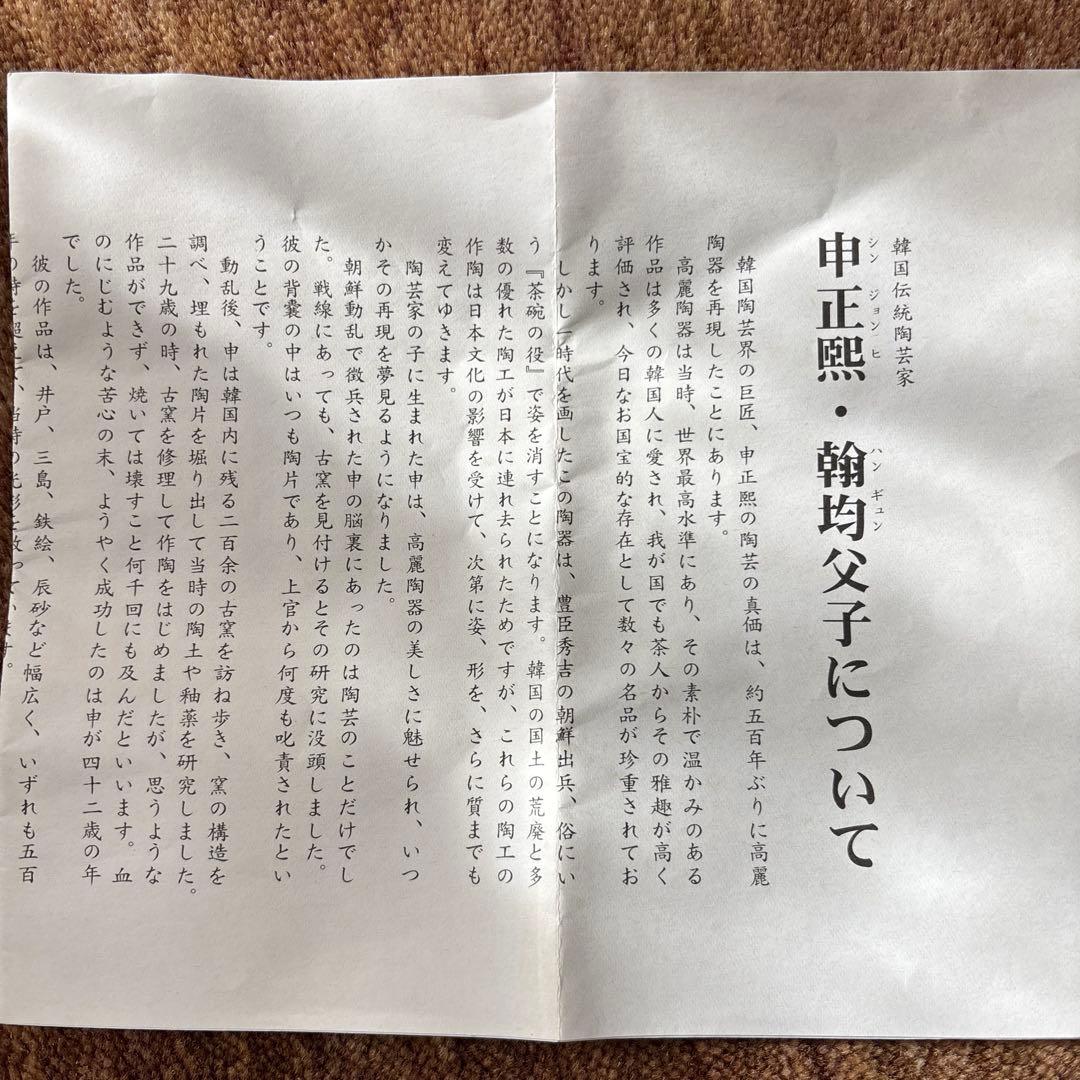 韓国伝統陶芸家
申正熙・翰均父子について
シン ジョン ヒ ハン ギュン
韓国陶芸界の巨匠、申正熙の陶芸の真価は、約五百年ぶりに高麗
陶器を再現したことにあります。
高麗陶器は当時、世界最高水準にあり、その素朴で温かみのある
作品は多くの韓国人に愛され、我が国でも茶人からその雅趣が高く
評価され、今日なお国宝的な存在として数々の名品が珍重されてお
ります。
しかし一時代を画したこの陶器は、豊臣秀吉の朝鮮出兵、俗にい
う『茶碗の役』で姿を消すことになります。韓国の国土の荒廃と多
数の優れた陶工が日本に連れ去られたためですが、これらの陶工の
作陶は日本文化の影響を受けて、次第に姿、形を、さらに質までも
変えてゆきます。
陶芸家の子に生まれた申は、高麗陶器の美しさに魅せられ、いつ
かその再現を夢見るようになりました。
朝鮮動乱で徴兵された申の脳裏にあったのは陶芸のことだけでし
た。戦線にあっても、古窯を見付けるとその研究に没頭しました。
彼の背嚢の中はいつも陶片であり、上官から何度も叱責されたとい
うことです。
動乱後、申は韓国内に残る二百余の古窯を訪ね歩き、窯の構造を
調べ、埋もれた陶片を堀り出して当時の陶土や釉薬を研究しました。
二十九歳の時、古窯を修理して作陶をはじめましたが、思うような
作品ができず、焼いては壊すこと何千回にも及んだといいます。血
のにじむような苦心の末、ようやく成功したのは申が四十二歳の年
でした。
彼の作品は、井戸、三島、鉄絵、辰砂など幅広く、いずれも五百
年の時を超えて、当時の光彩を放っています。